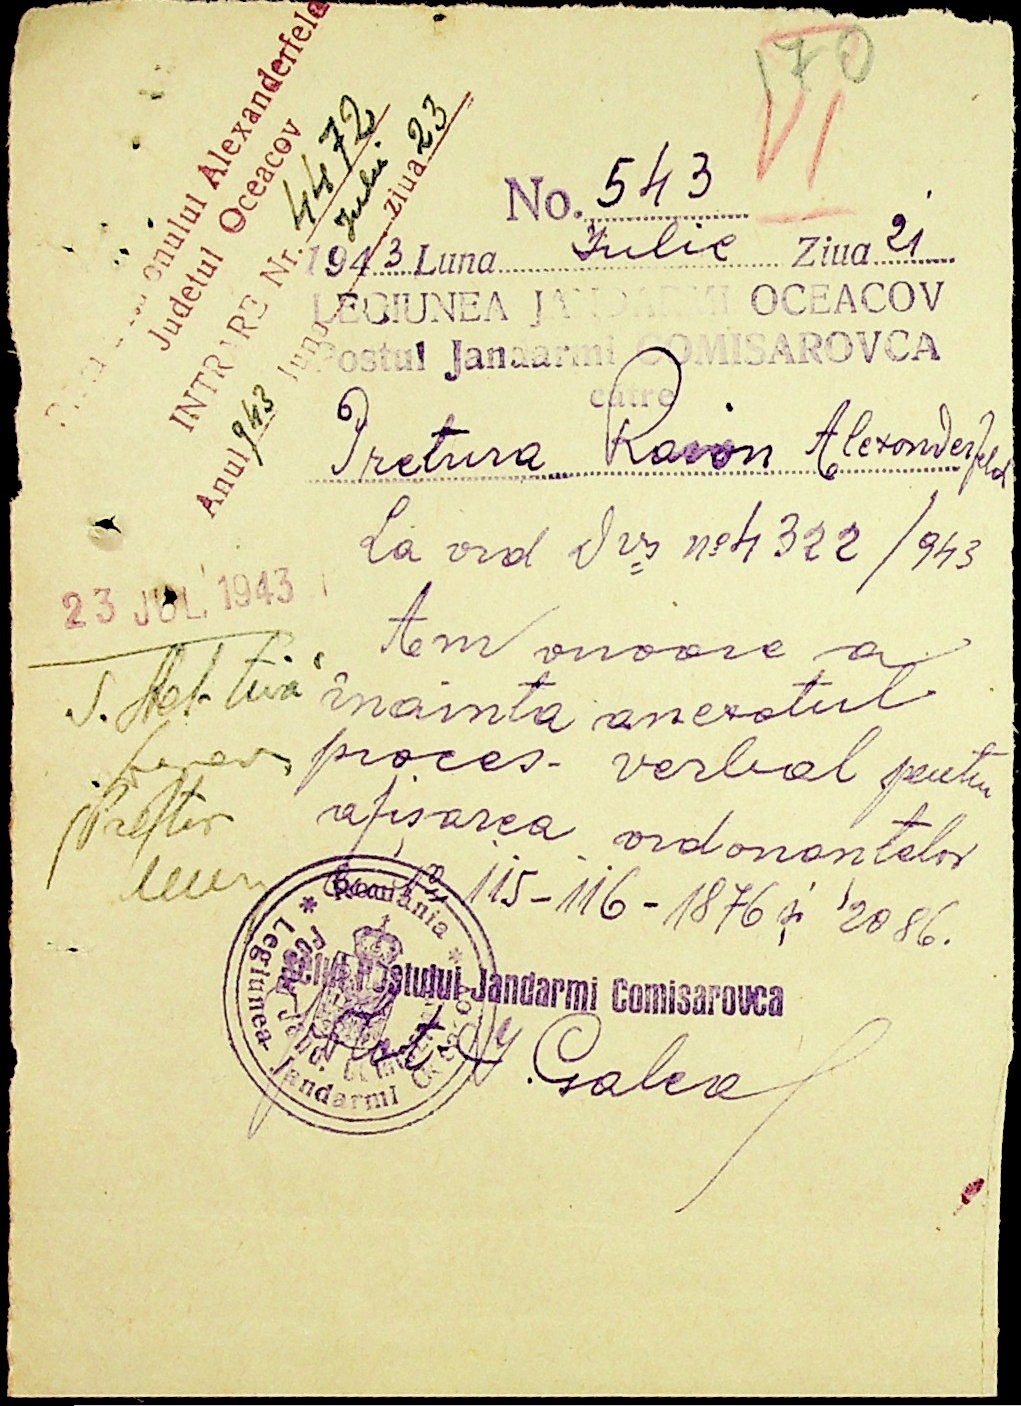 170
VI
onului Alexanderfeld
Judetul Oceacov
INTRARE Nr. 4472
Anul 943 Luna Iulie Ziua 23
No. 543
1943 Luna Iulie Ziua 21
LEGIUNEA JANDARMI OCEACOV
Postul Jandarmi COMISAROVCA
catre
Pretura Raion Alexanderfeld
La ord Dvs no 4322/943
23 JUL. 1943
Am onoare a
înainta anexatul
proces-verbal pentru
afisarea ordonantelor
115-116-1876 și 2086.
România
Legiunea Jandarmi
Seful Postului Jandarmi Comisarovca
Galea